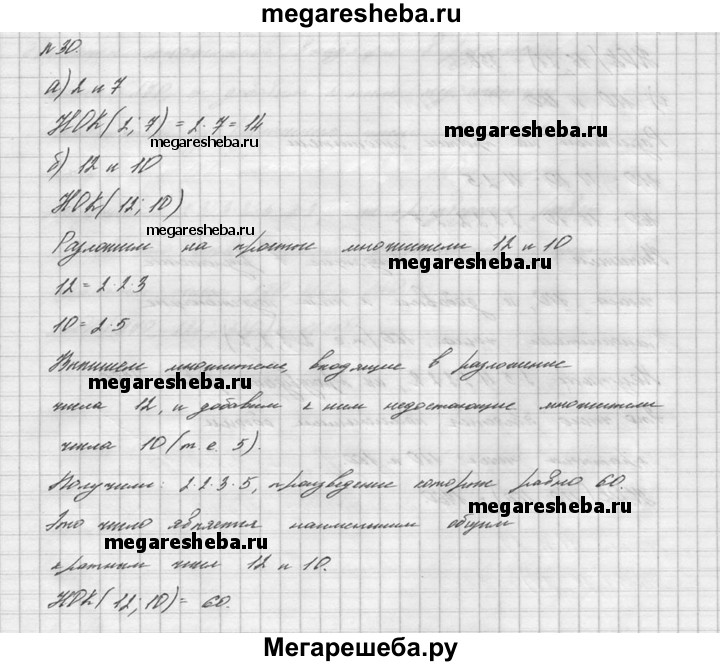 megaresheba.ru
№30.
а) 2 и 7
НОК(2; 7) = 2·7 = 14
megaresheba.ru
megaresheba.ru
б) 12 и 10
НОК(12; 10)
megaresheba.ru
Разложим на простые множители 12 и 10
megaresheba.ru
12 = 2·2·3
10 = 2·5
Выпишем множители, входящие в разложение
megaresheba.ru
числа 12, и добавим к ним недостающие множители
числа 10 (т.е. 5).
Получили: 2·2·3·5, произведение которых равно 60.
megaresheba.ru
Это число является наименьшим общим
megaresheba.ru
кратным чисел 12 и 10.
НОК(12; 10) = 60.
Мегарешеба.ру